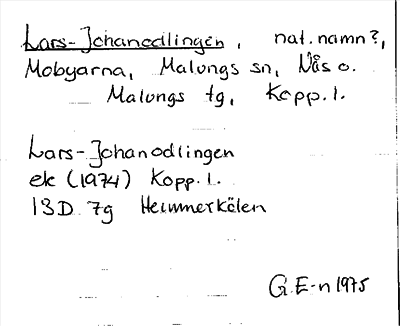 Lars-Johanodlingen, nat. namn?,
Mobyarna, Malungs sn, Nås o.
Malungs tg, Kopp. l.
Lars-Johanodlingen
ek (1974) Kopp. l.
13D 7g Heimmerkölen
G.E-n 1975